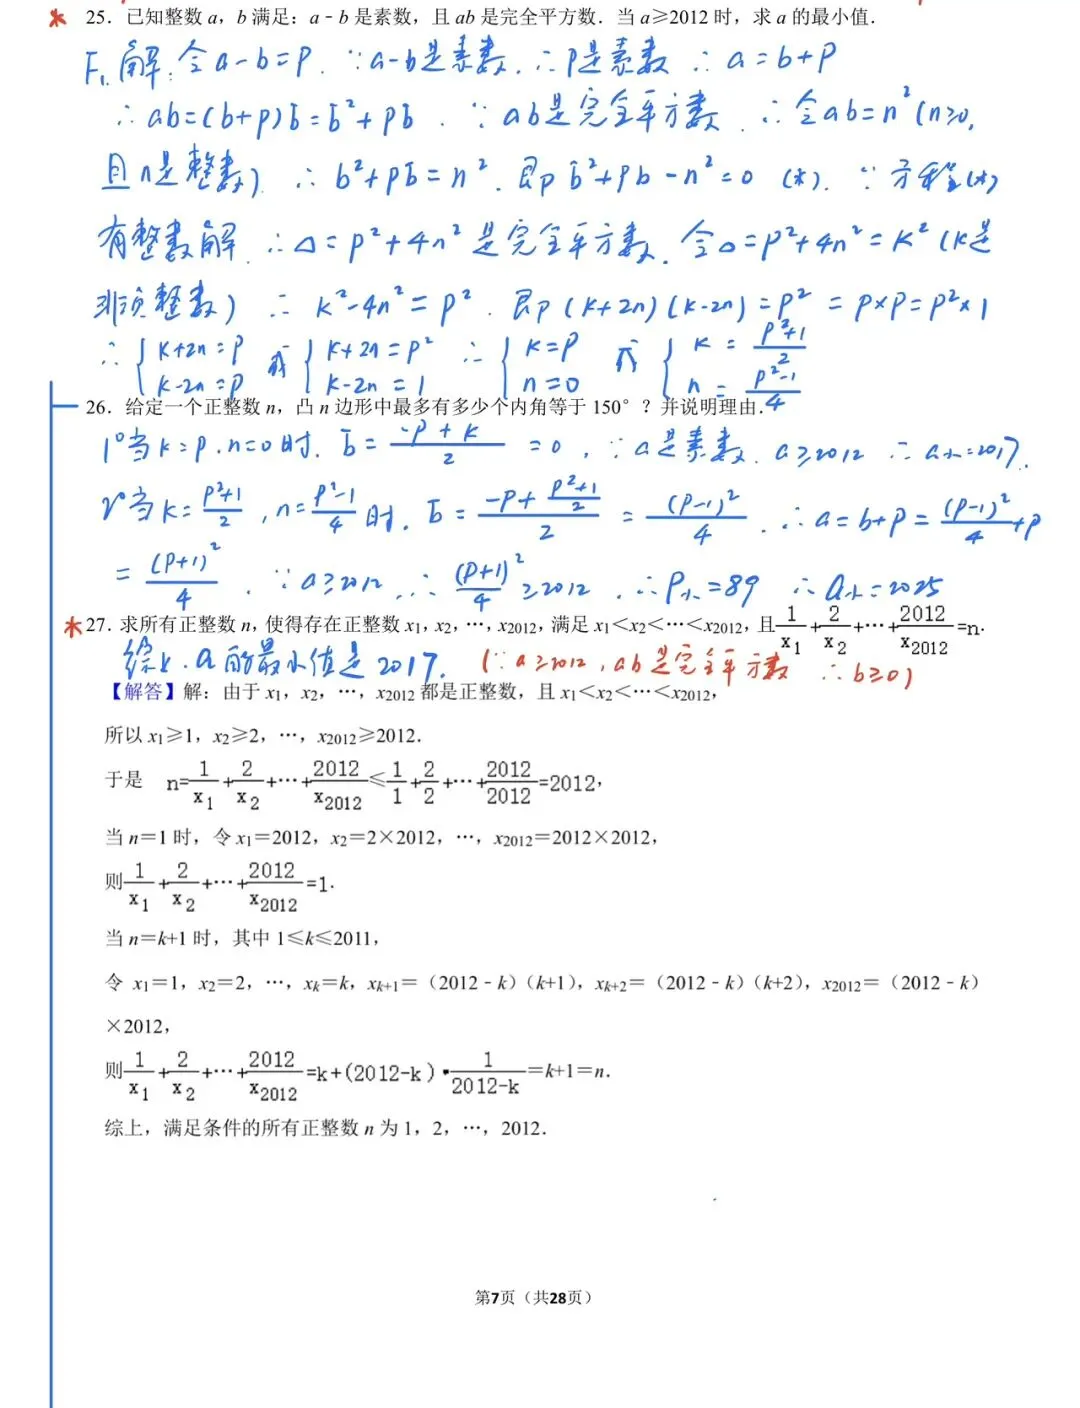 * 25．已知整数 a，b 满足：a－b 是素数，且 ab 是完全平方数．当 a≥2012 时，求 a 的最小值．
F₁ 解：令 a-b=P. ∵a-b是素数. ∴P是素数 ∴ a=b+P
∴ ab=(b+P)b=b²+Pb . ∵ ab是完全平方数 . ∴令ab=n² (n≥0,
且n是整数) ∴ b²+Pb=n² . 即b²+Pb-n²=0 (*). ∵方程(*)
有整数解 ∴△=P²+4n²是完全平方数. 令△=P²+4n²=K² (K是
非负整数) ∴ K²-4n²=P² . 即(K+2n)(K-2n)=P²=P×P=P²×1
∴ { K+2n=P K-2n=P 或 { K+2n=P² K-2n=1 ∴ { K=P n=0 或 { K=(P²+1)/2 n=(P²-1)/4
26．给定一个正整数 n，凸 n 边形中最多有多少个内角等于 150°？并说明理由．
1°当K=P.n=0时. b=(-P+K)/2=0 , ∵a是素数. a≥2012 ∴a小=2017.
2°当K=(P²+1)/2 , n=(P²-1)/4时. b=(-P+(P²+1)/2)/2=(P-1)²/4 . ∴a=b+P=(P-1)²/4+P
=(P+1)²/4 . ∵a≥2012 . ∴(P+1)²/4≥2012 . ∴P小=89 ∴a小=2025
* 27．求所有正整数 n，使得存在正整数 x₁，x₂，…，x₂₀₁₂，满足 x₁＜x₂＜…＜x₂₀₁₂，且 1/x₁+2/x₂+…+2012/x₂₀₁₂=n．
综上. a的最小值是2017. (∵a≥2012 , ab是完全平方数 ∴b≥0)
【解答】解：由于 x₁，x₂，…，x₂₀₁₂ 都是正整数，且 x₁＜x₂＜…＜x₂₀₁₂，
所以 x₁≥1，x₂≥2，…，x₂₀₁₂≥2012．
于是 n=1/x₁+2/x₂+…+2012/x₂₀₁₂≤1/1+2/2+…+2012/2012=2012，
当 n＝1 时，令 x₁＝2012，x₂＝2×2012，…，x₂₀₁₂＝2012×2012，
则1/x₁+2/x₂+…+2012/x₂₀₁₂=1．
当 n＝k+1 时，其中 1≤k≤2011，
令 x₁＝1，x₂＝2，…，xₖ＝k，xₖ₊₁＝（2012－k）（k+1），xₖ₊₂＝（2012－k）（k+2），x₂₀₁₂＝（2012－k）
×2012，
则1/x₁+2/x₂+…+2012/x₂₀₁₂=k+(2012-k)•1/(2012-k)＝k+1＝n．
综上，满足条件的所有正整数 n 为 1，2，…，2012．
第7页（共28页）